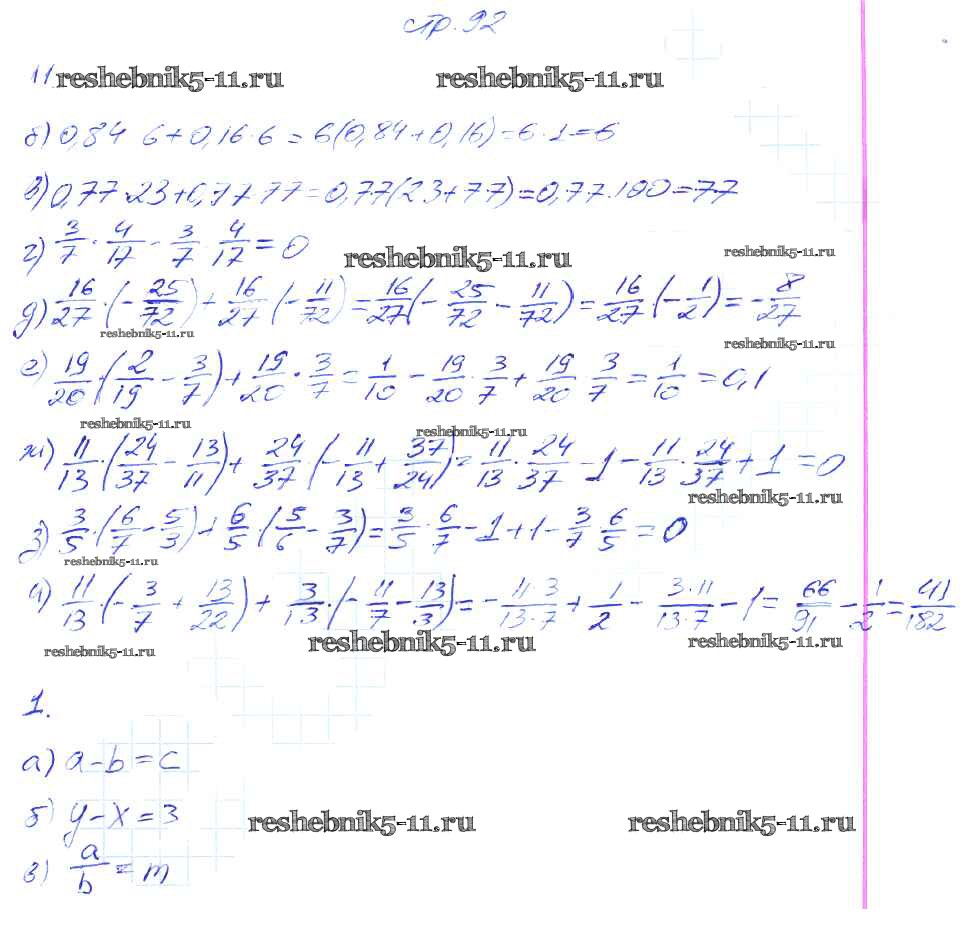 стр. 92
11
reshebnik5-11.ru reshebnik5-11.ru
б) 0,84 6 + 0,16 · 6 = 6(0,84 + 0,16) = 6 · 1 = 6
в) 0,77 · 23 + 0,77 77 = 0,77(23 + 77) = 0,77 · 100 = 77
г) 3/7 · 4/17 - 3/7 4/17 = 0
reshebnik5-11.ru reshebnik5-11.ru
д) 16/27 · (- 25/72) + 16/27 (- 11/72) = 16/27 (- 25/72 - 11/72) = 16/27 (- 1/2) = - 8/27
reshebnik5-11.ru reshebnik5-11.ru
е) 19/20 · (2/19 - 3/7) + 19/20 · 3/7 = 1/10 - 19/20 · 3/7 + 19/20 3/7 = 1/10 = 0,1
reshebnik5-11.ru reshebnik5-11.ru
ж) 11/13 · (24/37 - 13/11) + 24/37 (- 11/13 + 37/24) = 11/13 · 24/37 - 1 - 11/13 · 24/37 + 1 = 0
reshebnik5-11.ru
з) 3/5 · (6/7 - 5/3) + 6/5 · (5/6 - 3/7) = 3/5 · 6/7 - 1 + 1 - 3/7 6/5 = 0
reshebnik5-11.ru
и) 11/13 · (- 3/7 + 13/22) + 3/13 · (- 11/7 - 13/3) = - 11 3/13 · 7 + 1/2 - 3 · 11/13 · 7 - 1 = 66/91 - 1/2 = 41/182
reshebnik5-11.ru reshebnik5-11.ru reshebnik5-11.ru
1.
а) a - b = c
б) y - x = 3
reshebnik5-11.ru reshebnik5-11.ru
в) a/b = m